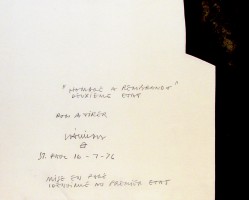 "HOMMAGE A REMBRANDT"
DEUXIEME ETAT
BON A TIRER
ST. PAUL 16-7-76
MISE EN PAGE
IDENTIQUE AU PREMIER ETAT